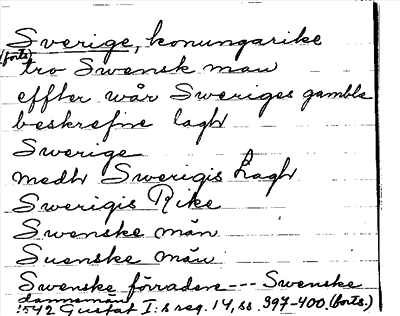 Sverige, konungarike
(forts.)
tro Swensk man
effter wår Sweriges gamble
beskrefne lagh
Swerige
medh Swerigis Lagh
Swerigis Rike
Swenske män
Suenske män
Swenske förradere --- Swenske
dannemän
1542 Gustaf I:s reg. 14, ss. 397-400. (forts.)